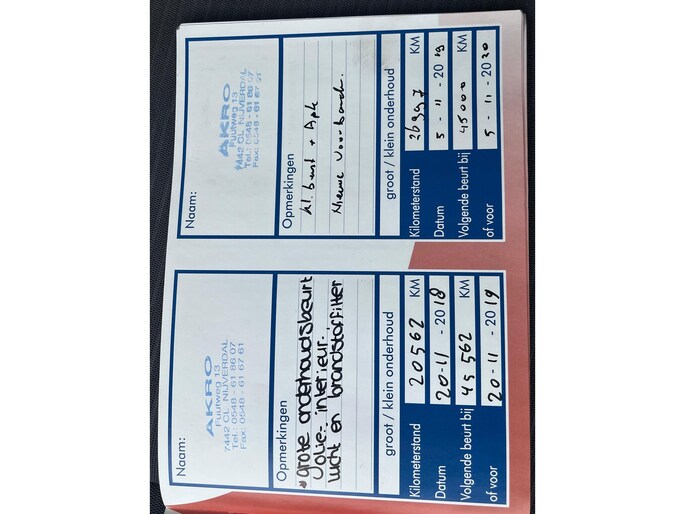 Naam:
AKRO
Fuutweg 13
7442 CL NIJVERDAL
Tel.: 0548 - 61 86 07
Fax: 0548 - 61 67 61
Opmerkingen
grote onderhoudsbeurt
olie-, interieur-,
lucht en brandstoffilter
groot / klein onderhoud
Kilometerstand 20562 KM
Datum 20-11 - 2018
Volgende beurt bij 45562 KM
of voor 20-11 - 2019
Naam:
AKRO
Fuutweg 13
7442 CL NIJVERDAL
Tel.: 0548 - 61 86 07
Fax: 0548 - 61 67 61
Opmerkingen
kl. beurt + Apk
Nieuwe voorbanden.
groot / klein onderhoud
Kilometerstand 26997 KM
Datum 5-11 - 2019
Volgende beurt bij 45000 KM
of voor 5-11 - 2020